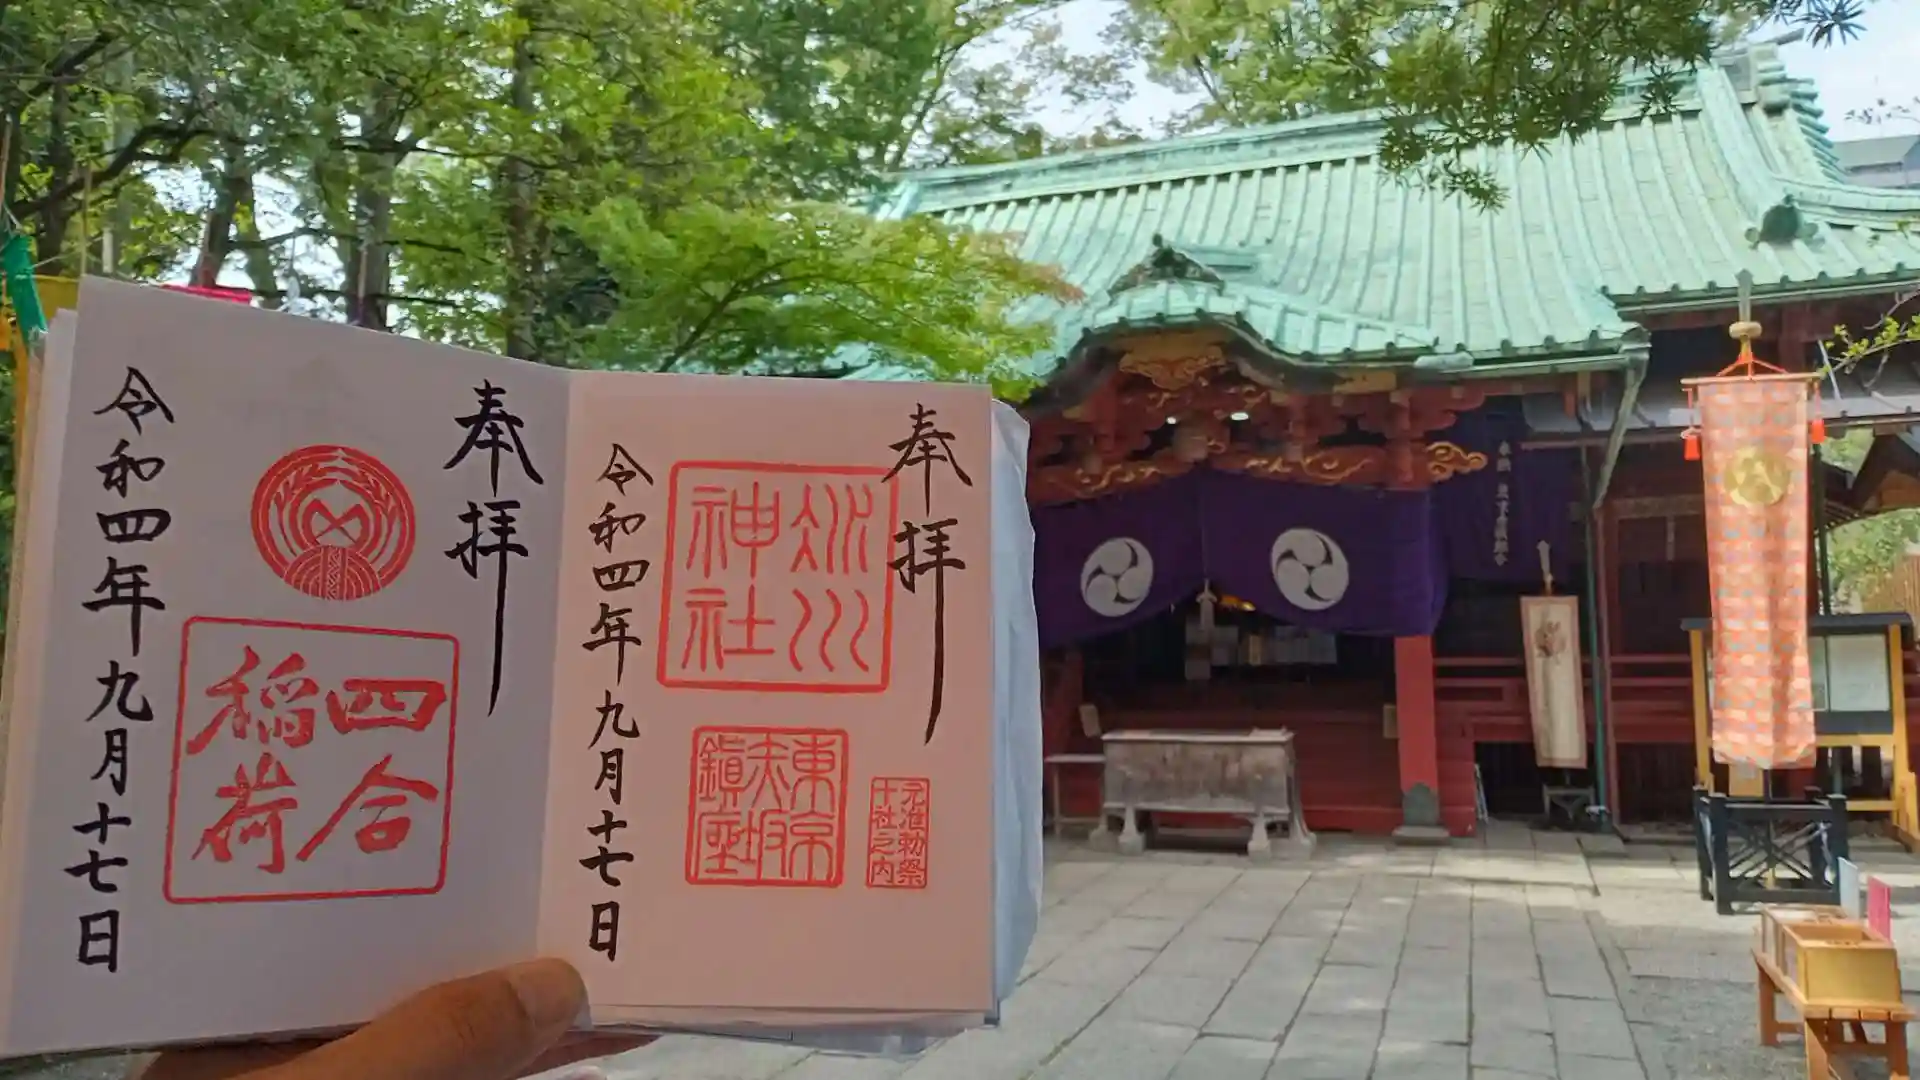 奉拝
氷川
神社
東京
赤坂
鎭座
元准勅祭
十社之内
令和四年九月十七日
奉拝
四合
稲荷
令和四年九月十七日